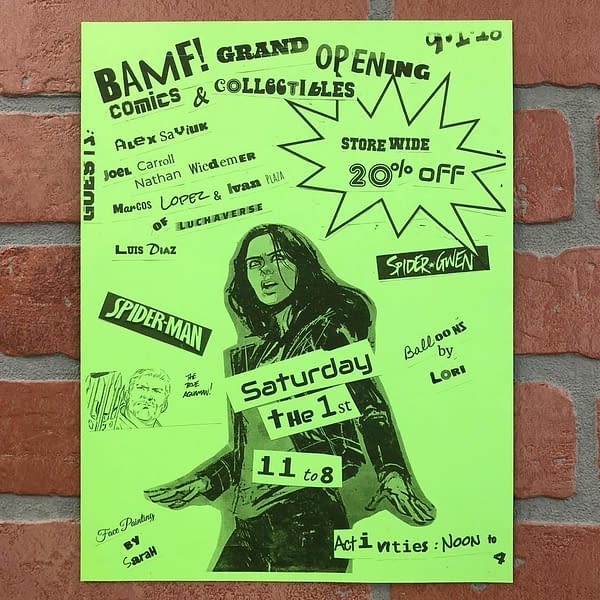 BAMF! GRAND OPENING
9.1.18
COMICS & COLLECTIBLES
GUESTS:
Alex Saviuk
Joel Carroll
Nathan Wiedemer
Marcos Lopez & Ivan PLAZA
OF LUCHAVERSE
Luis Diaz
STORE WIDE
20% OFF
SPIDER-GWEN
SPIDER-MAN
THE TRUE AQUAMAN!
Balloons
by
Lori
Saturday
the 1st
11 to 8
Face Painting
BY
Sarah
Activities: Noon to 4